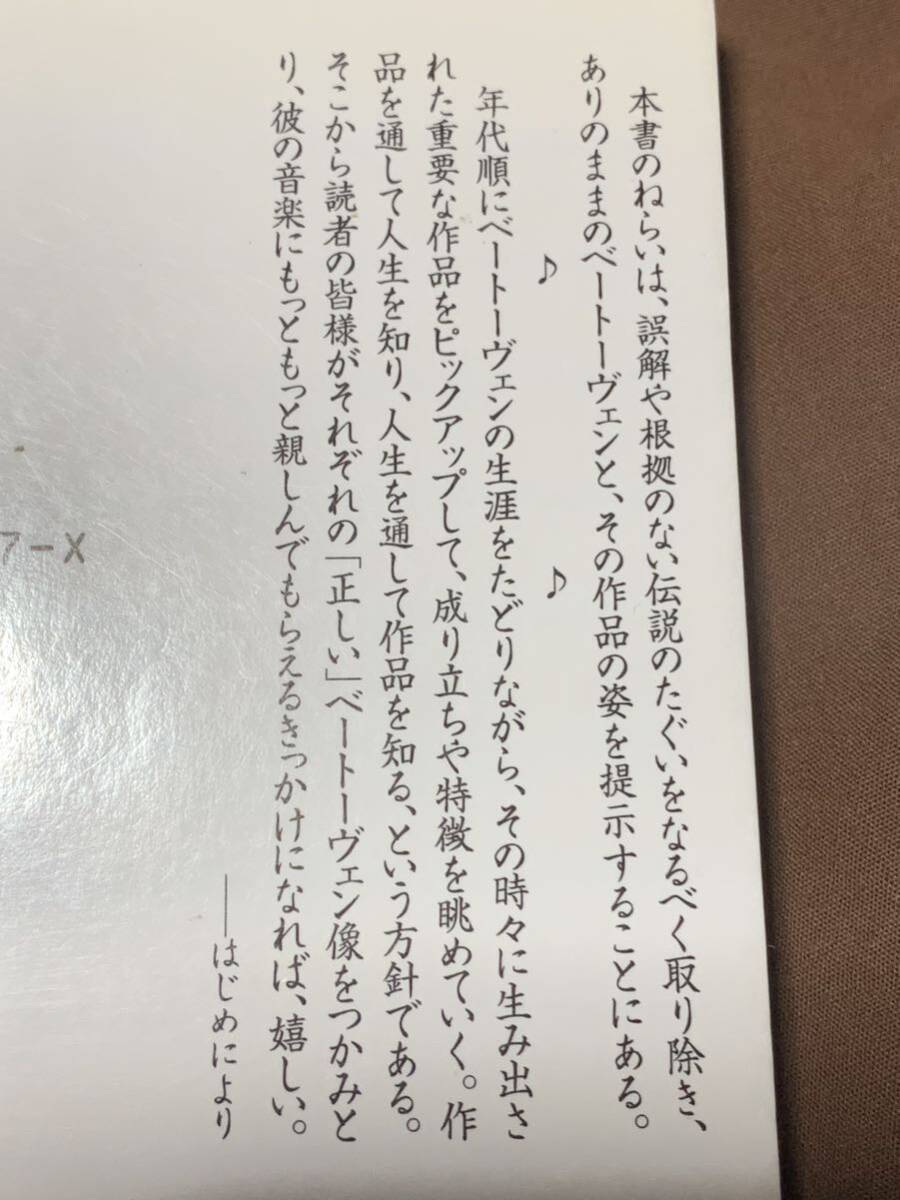 本書のねらいは、誤解や根拠のない伝説のたぐいをなるべく取り除き、
ありのままのベートーヴェンと、その作品の姿を提示することにある。
♪ ♪
年代順にベートーヴェンの生涯をたどりながら、その時々に生み出さ
れた重要な作品をピックアップして、成り立ちや特徴を眺めていく。作
品を通して人生を知り、人生を通して作品を知る、という方針である。
そこから読者の皆様がそれぞれの「正しい」ベートーヴェン像をつかみと
り、彼の音楽にもっともっと親しんでもらえるきっかけになれば、嬉しい。
──はじめにより
7-X